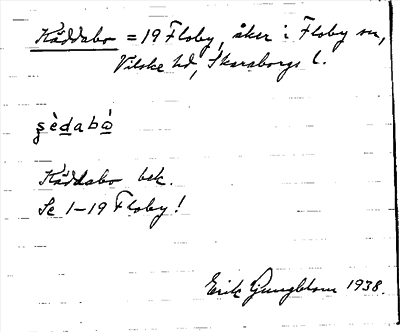 Käddabo = 19 Floby, åker i Floby sn,
Vilske hd, Skaraborgs l.
şèdabò
Käddabo bek.
Se 1-19 Floby!
Erik Ljungblom 1938.